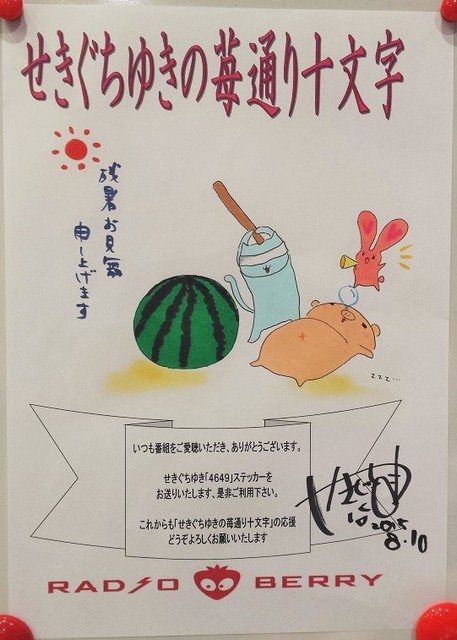 せきぐちゆきの苺通り十文字
残暑お見舞
申し上げます
zzz...
いつも番組をご愛聴いただき、ありがとうございます。
せきぐちゆき「4649」ステッカーを
お送りいたします、是非ご利用下さい。
これからも「せきぐちゆきの苺通り十文字」の応援
どうぞよろしくお願いいたします
2015
8.10
RADIO BERRY